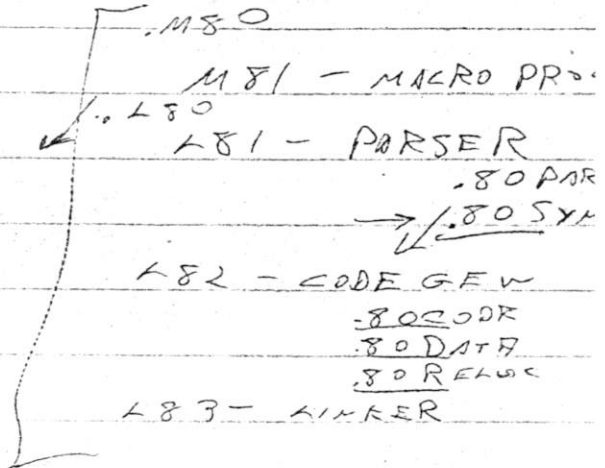 .M80
M81 - MACRO PRO.
.L80
L81 - PARSER
.80 PAR
.80 SYM
L82 - CODE GEN
.80CODE
.80 DATA
.80 RELOC
L83 - LINKER